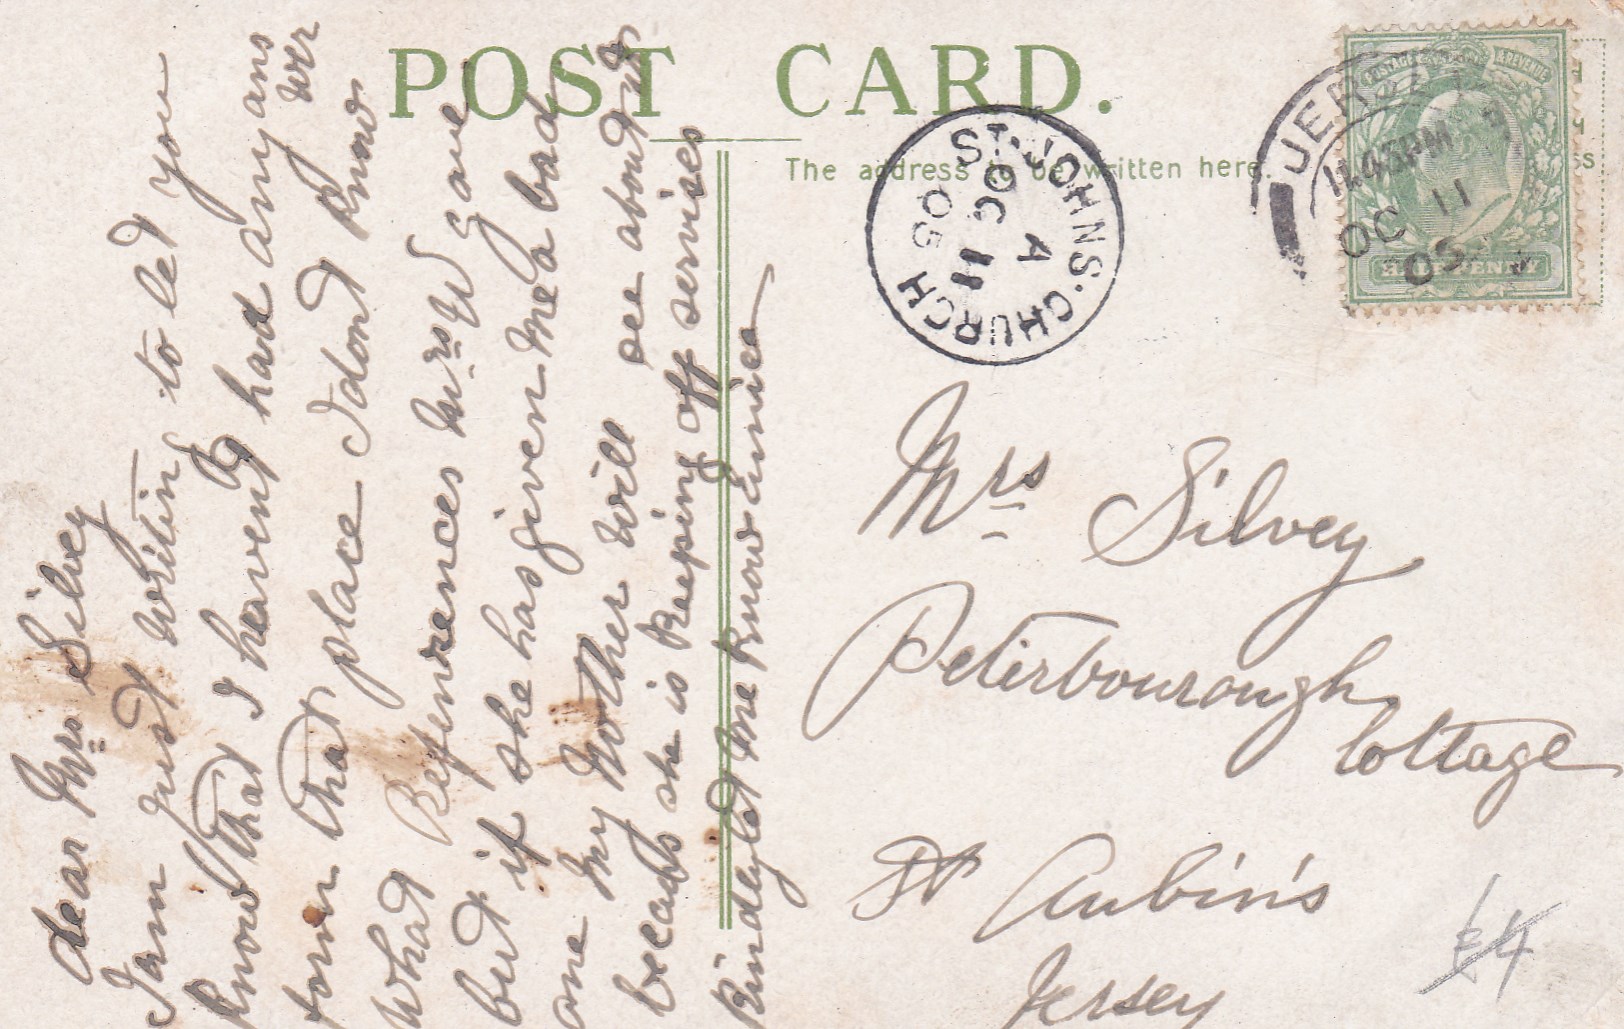 POST CARD.
The address to be written here.
Dear Mrs Silvey
I am just writing to let you
know that I havent had any ans
from that place I dont know
wer
what Refewrences Mrs W gave
but if she has given me a bad
one My Mother will see about it
becauss she is keeping off services
Kindly let me know
ST. JOHNS. CHURCH
A
OC 11
05
JERSEY
11.45PM
OC 11
05
POSTAGE & REVENUE
HALF PENNY
Mrs Silvey
Peterbourough
Cottage
St Aubin's
Jersey
£4